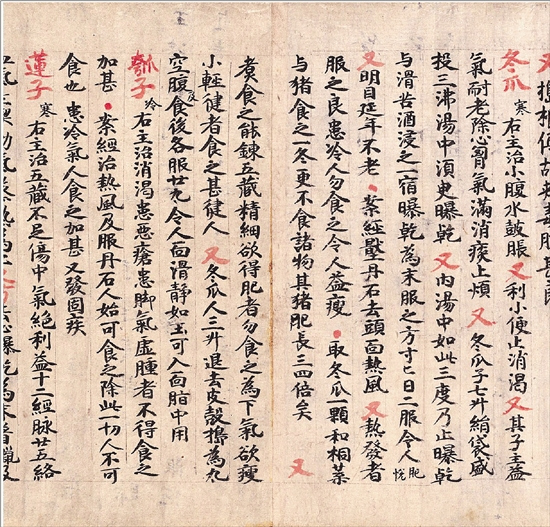 冬瓜寒 右主治小腹水皷脹 又利小便止消渴 又其子主益
氣耐老除心胷氣滿消痰止煩 又冬瓜子七升絹袋盛
投三沸湯中須臾曝乾 又內湯中如此三度乃止曝乾
与清苦酒浸之一宿曝乾為末服之方寸匕日二服令人肥悅
又明目延年不老 案經壓丹石去頭面熱風 又熱發者
服之良患冷人勿食之令人益瘦 取冬瓜一顆和桐葉
与猪食之一冬更不食諸物其猪肥長三四倍矣 又
煑食之能鍊五藏精細欲得肥者勿食之為下氣欲瘦
小輕健者食之甚健人 又冬瓜人三升退去皮殼擣為丸
空腹及食後各服廿丸令人面滑靜如玉可入面脂中用
瓠子冷 右主治消渴患惡瘡患脚氣虛腫者不得食之
加甚 案經治熱風及服丹石人始可食之除此一切人不可
食也 患冷氣人食之加甚又發固疾
蓮子寒 右主治五藏不足傷中氣絕利益十二經脉廿五絡